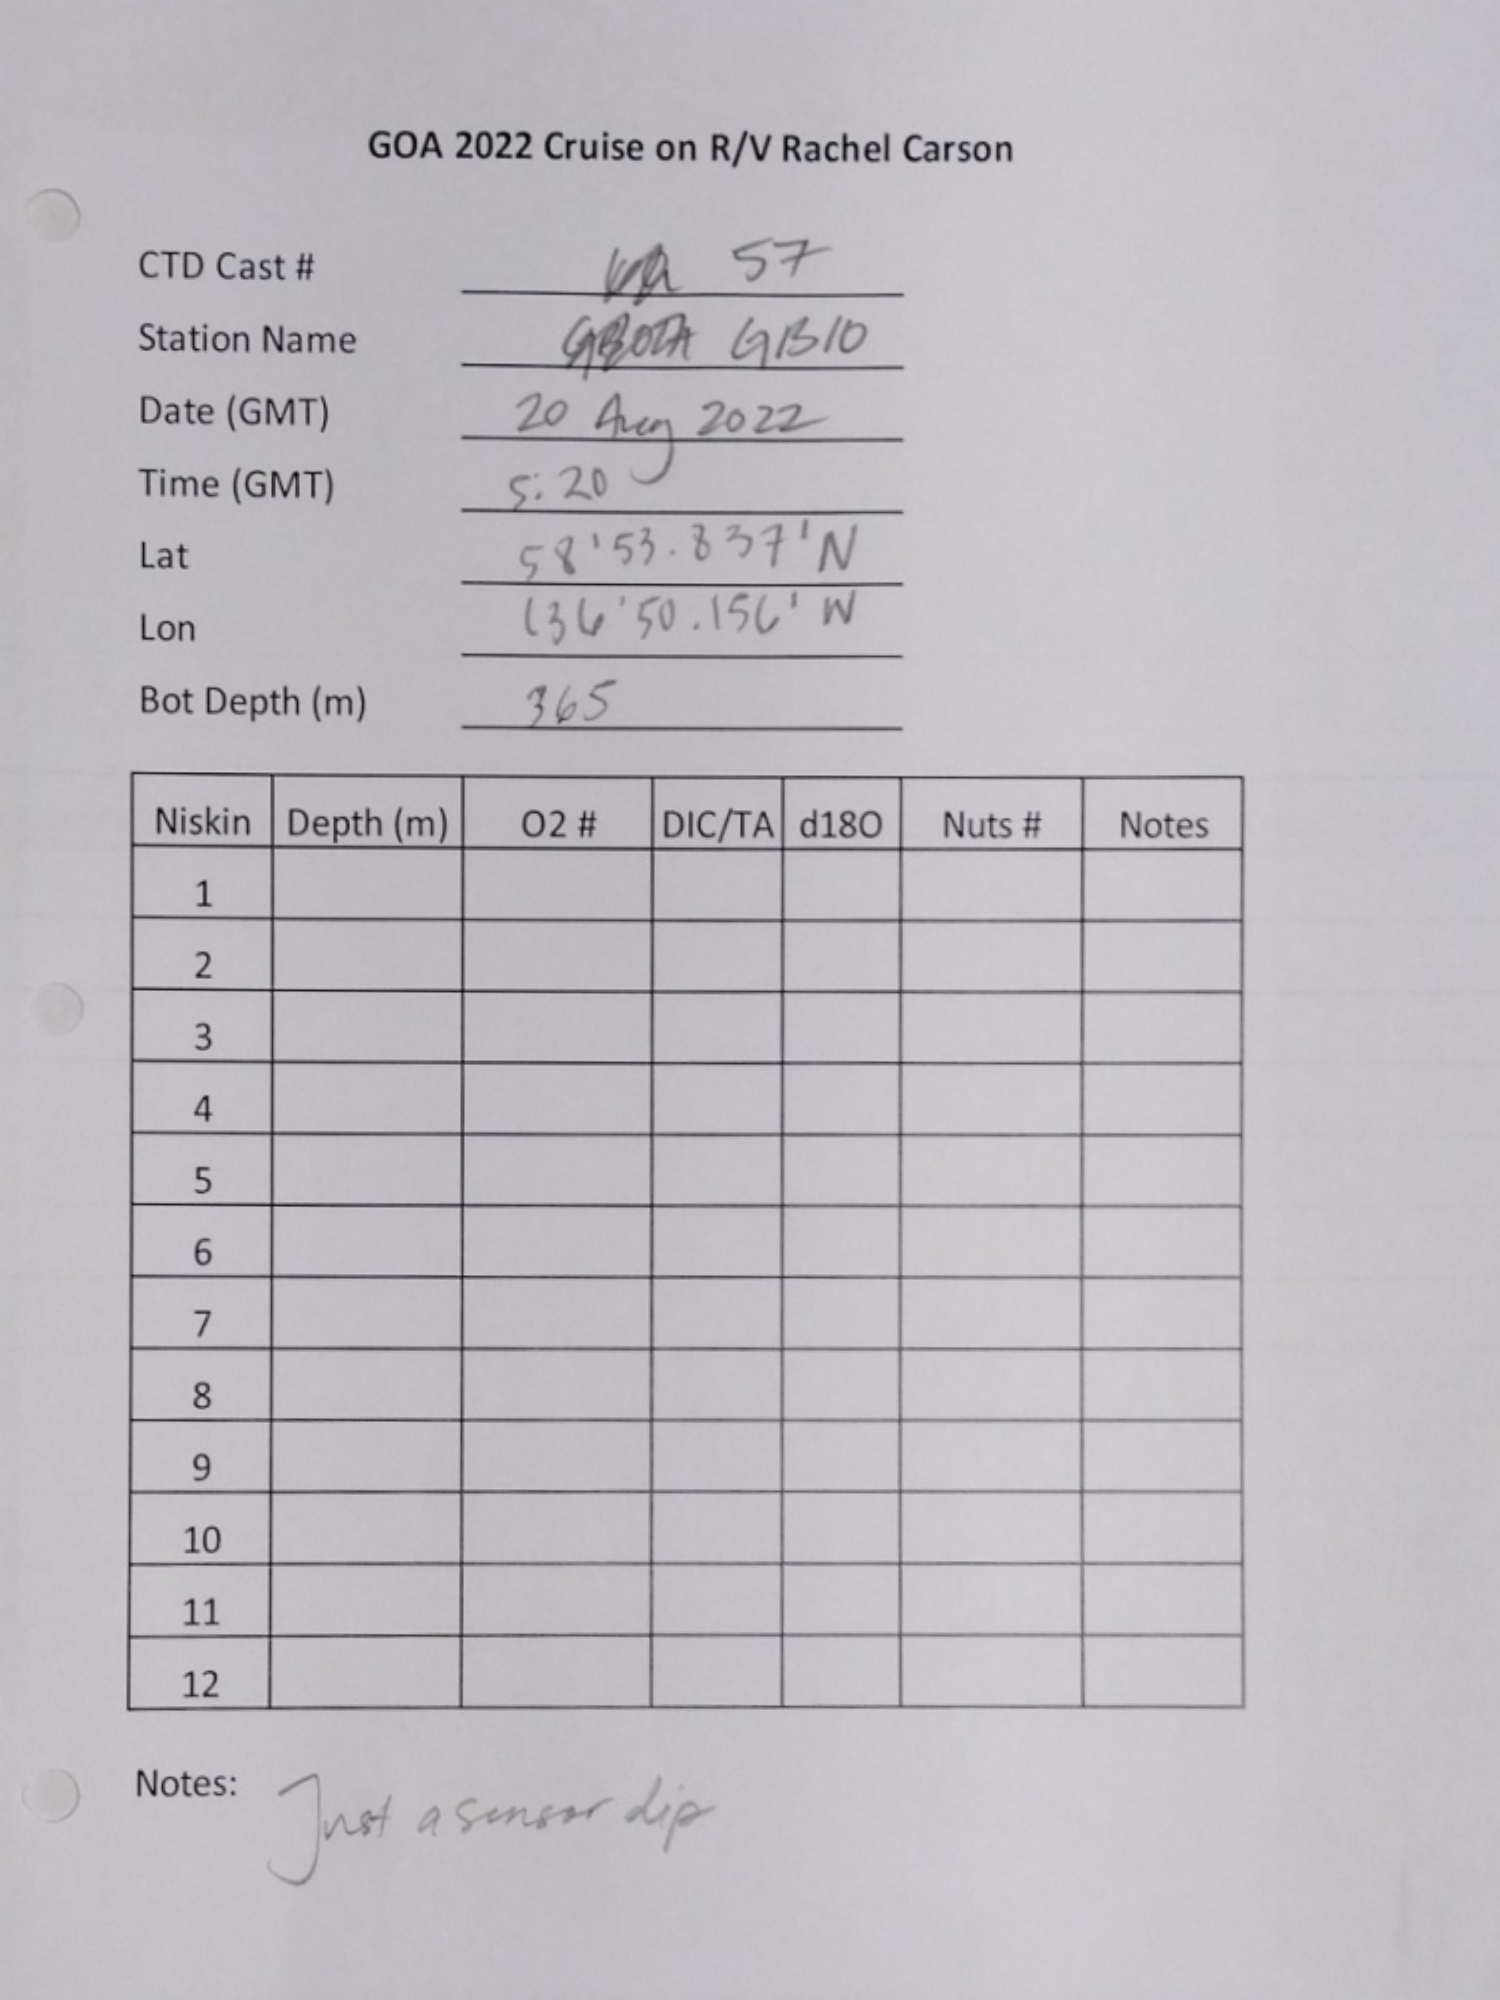 GOA 2022 Cruise on R/V Rachel Carson
CTD Cast # 57
Station Name GB10
Date (GMT) 20 Aug 2022
Time (GMT) 5:20
Lat 58'53.837'N
Lon 136'50.156'W
Bot Depth (m) 365
Niskin Depth (m) O2 # DIC/TA d18O Nuts # Notes
1
2
3
4
5
6
7
8
9
10
11
12
Notes: Just a sensor dip